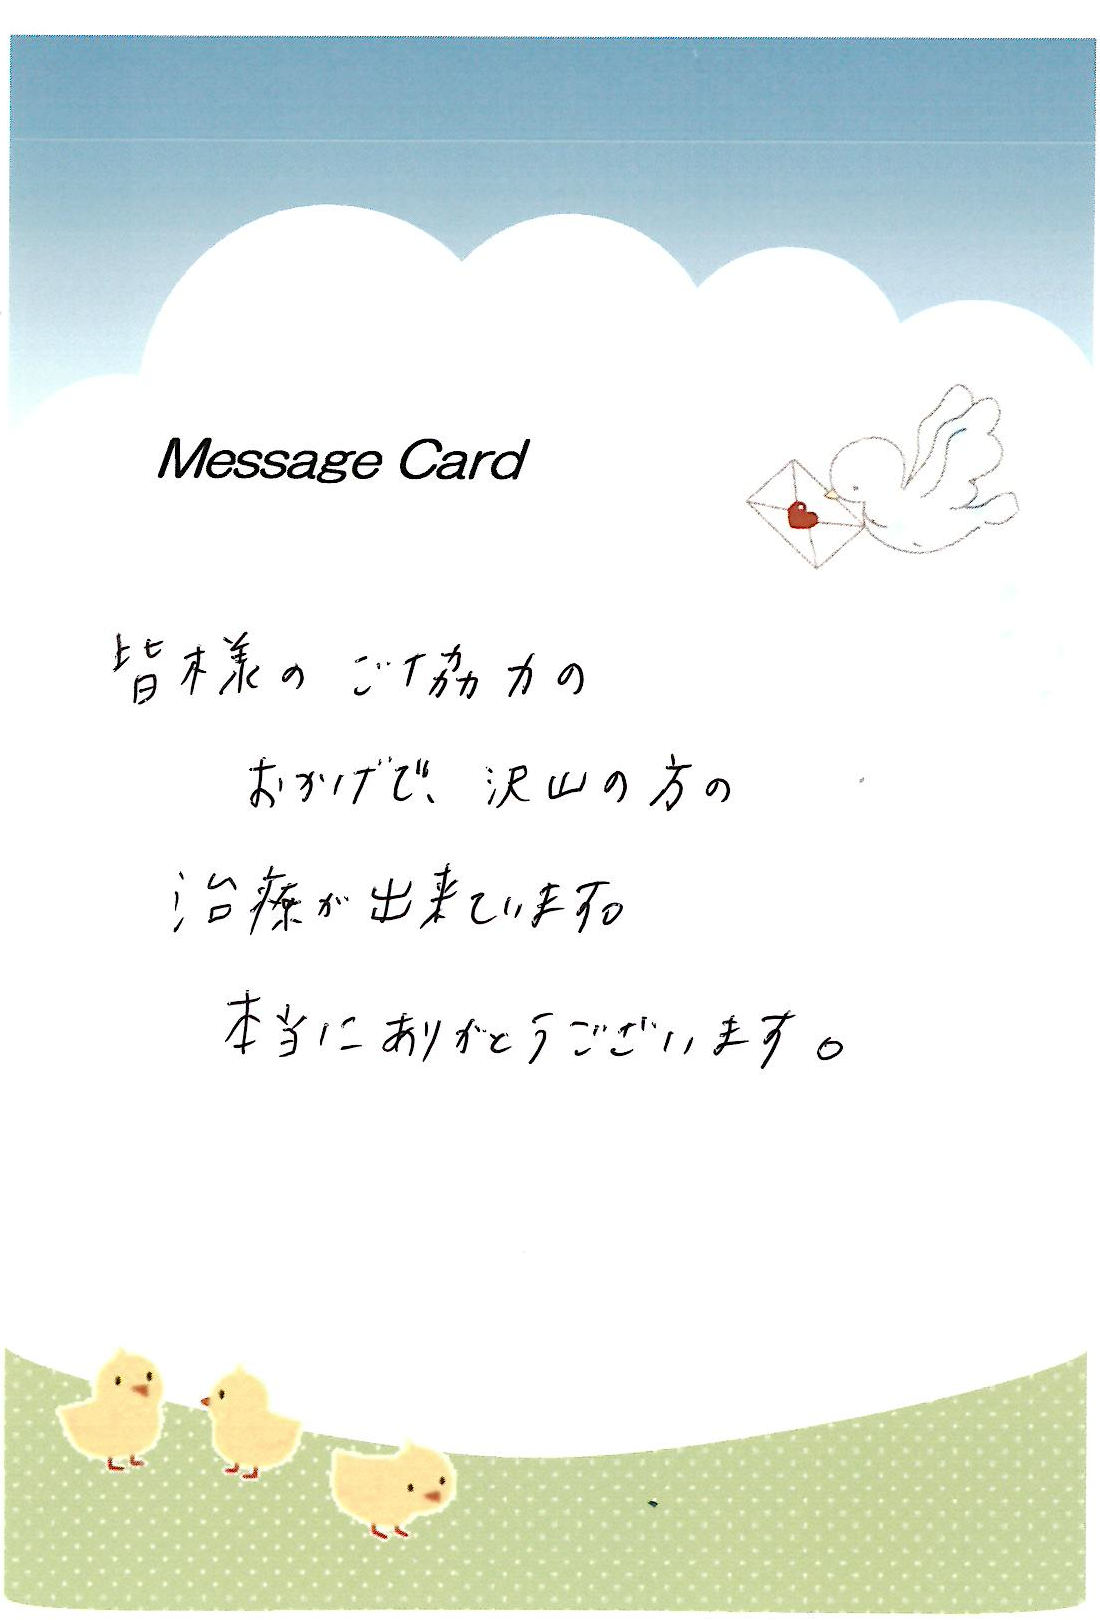 Message Card
皆様のご協力の
おかげで、沢山の方の
治療が出来ています。
本当にありがとうございます。